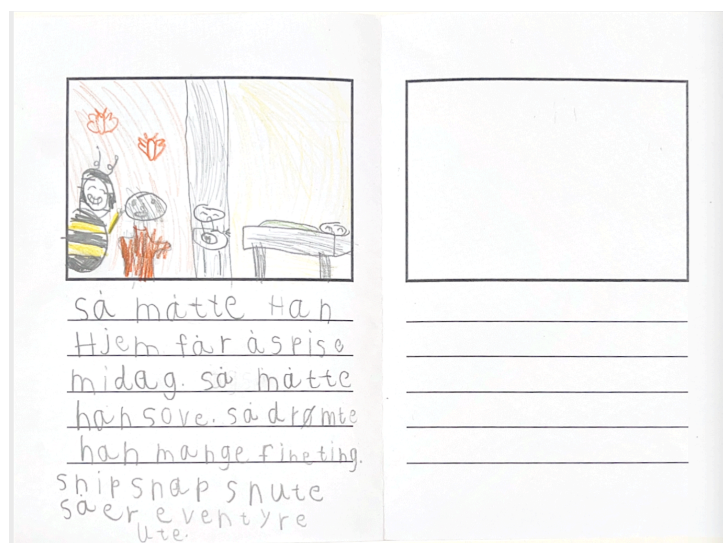 så måtte Han
Hjem får å spise
midag. så måtte
han sove. så drømte
han mange fine ting.
snip snap snute
så er eventyre
ute.